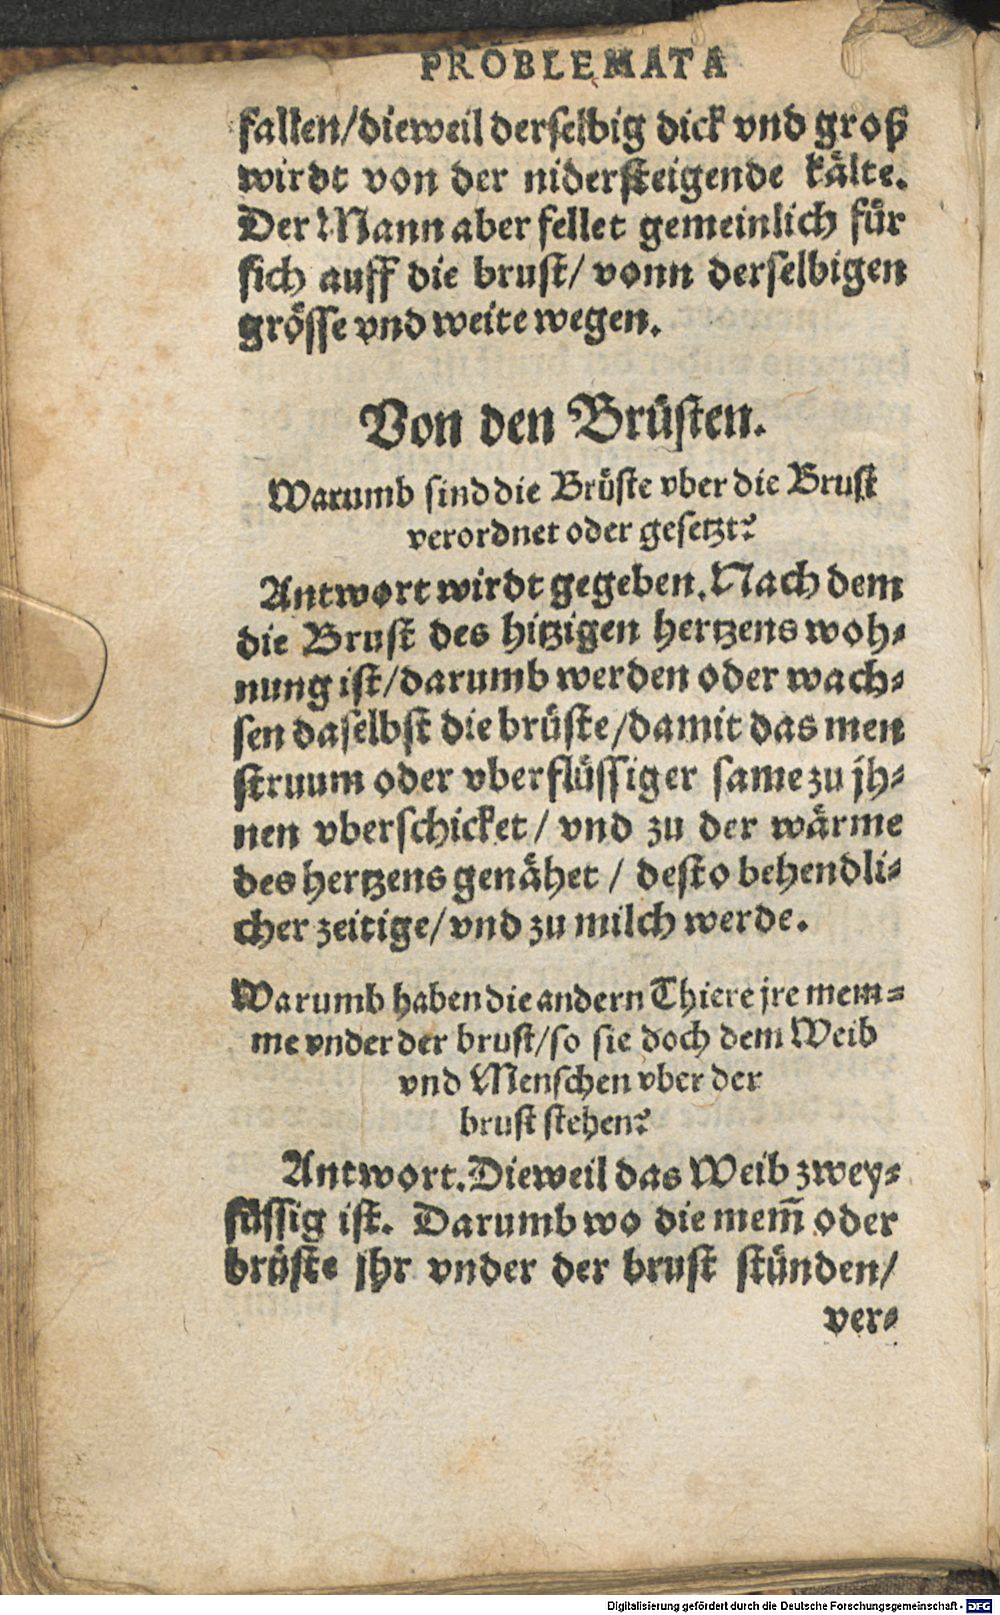 PROBLEMATA
fallen/dieweil derselbig dick vnd groß
wirdt von der nidersteigende kälte.
Der Mann aber fellet gemeinlich für
sich auff die brust/ vonn derselbigen
grösse vnd weite wegen.
Von den Brüsten.
Warumb sind die Brüste vber die Brust
verordnet oder gesetzt?
Antwort wirdt gegeben. Nach dem
die Brust des hitzigen hertzens woh⸗
nung ist/darumb werden oder wach⸗
sen daselbst die brüste/damit das men
struum oder vberflüssiger same zu jh⸗
nen vberschicket/ vnd zu der wärme
des hertzens genähet/ desto behendli⸗
cher zeitige/vnd zu milch werde.
Warumb haben die andern Thiere jre mem⸗
me vnder der brust/so sie doch dem Weib
vnd Menschen vber der
brust stehen?
Antwort. Dieweil das Weib zwey⸗
füssig ist. Darumb wo die mem̃ oder
brüste jhr vnder der brust stünden/
ver⸗
Digitalisierung gefördert durch die Deutsche Forschungsgemeinschaft - DFG